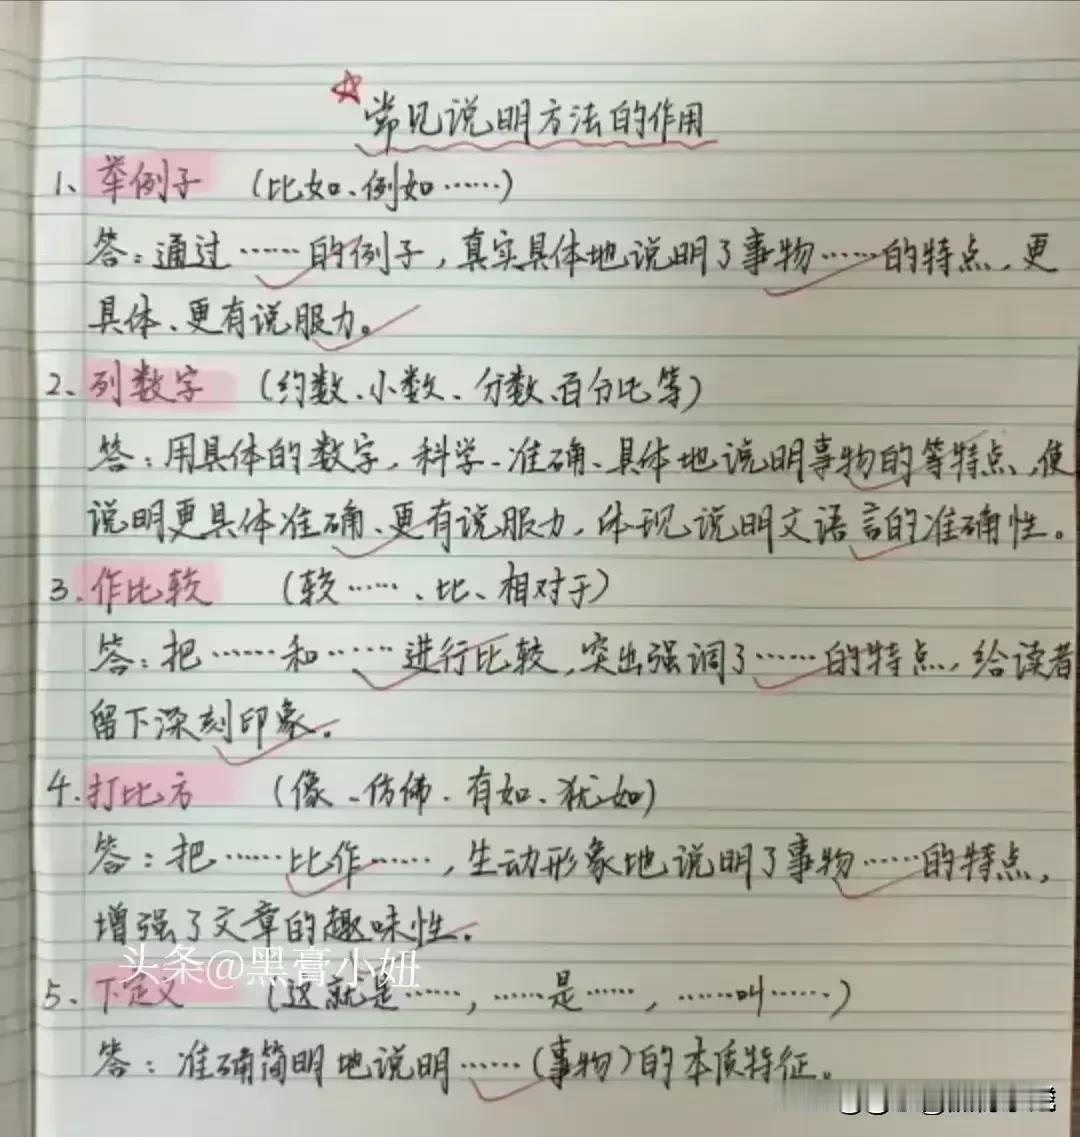 常见说明方法的作用
1、举例子 (比如、例如……)
答：通过……的例子，真实具体地说明了事物……的特点，更
具体、更有说服力。
2、列数字 (约数、小数、分数、百分比等)
答：用具体的数字，科学、准确、具体地说明事物的等特点，使
说明更具体准确、更有说服力，体现说明文语言的准确性。
3、作比较 (较……、比、相对于)
答：把……和……进行比较，突出强调了……的特点，给读者
留下深刻印象。
4、打比方 (像、仿佛、有如、犹如)
答：把……比作……，生动形象地说明了事物……的特点，
增强了文章的趣味性。
头条@黑膏小妞
5、下定义 (这就是……，……是……，……叫……)
答：准确简明地说明……(事物)的本质特征。